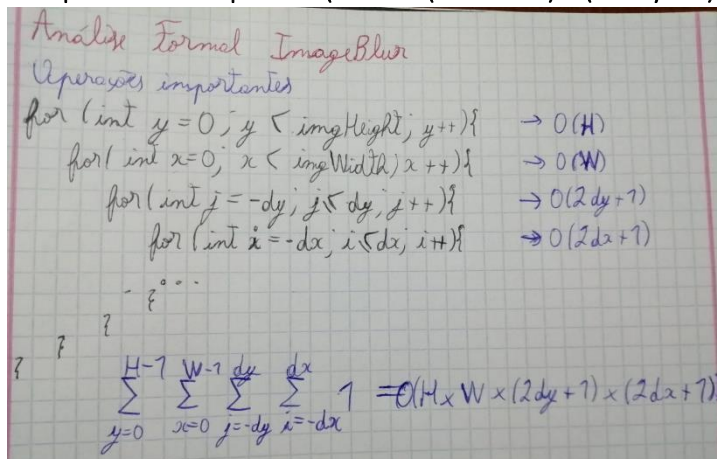 Análise Formal ImageBlur
Operações importantes
for (int y = 0; y < imgHeight; y++){ → O(H)
for( int x=0; x < imgWidth; x ++){ → O(W)
for( int j = -dy; j≤ dy; j++){ → O(2dy+1)
for (int i = -dx; i≤dx; i++){ → O(2dx+1)
...
}
}
}
}
H-1 W-1 dy dx
∑ ∑ ∑ ∑ 1 = O(H x W x (2dy+1) x (2dx+1)
y=0 x=0 j=-dy i=-dx